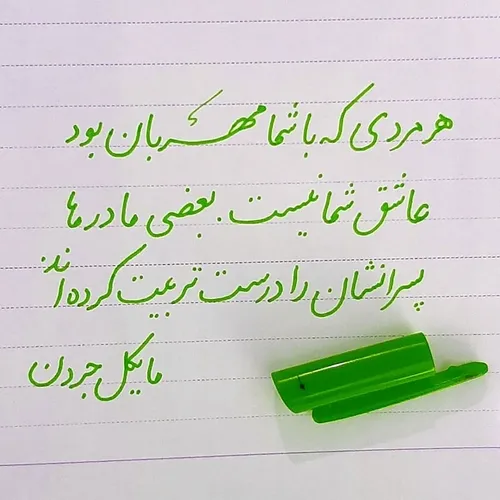 هر مردی که با شما مهربان بود
عاشق شما نیست. بعضی مادرها
پسرانشان را درست تربیت کرده‌اند
مایکل جردن